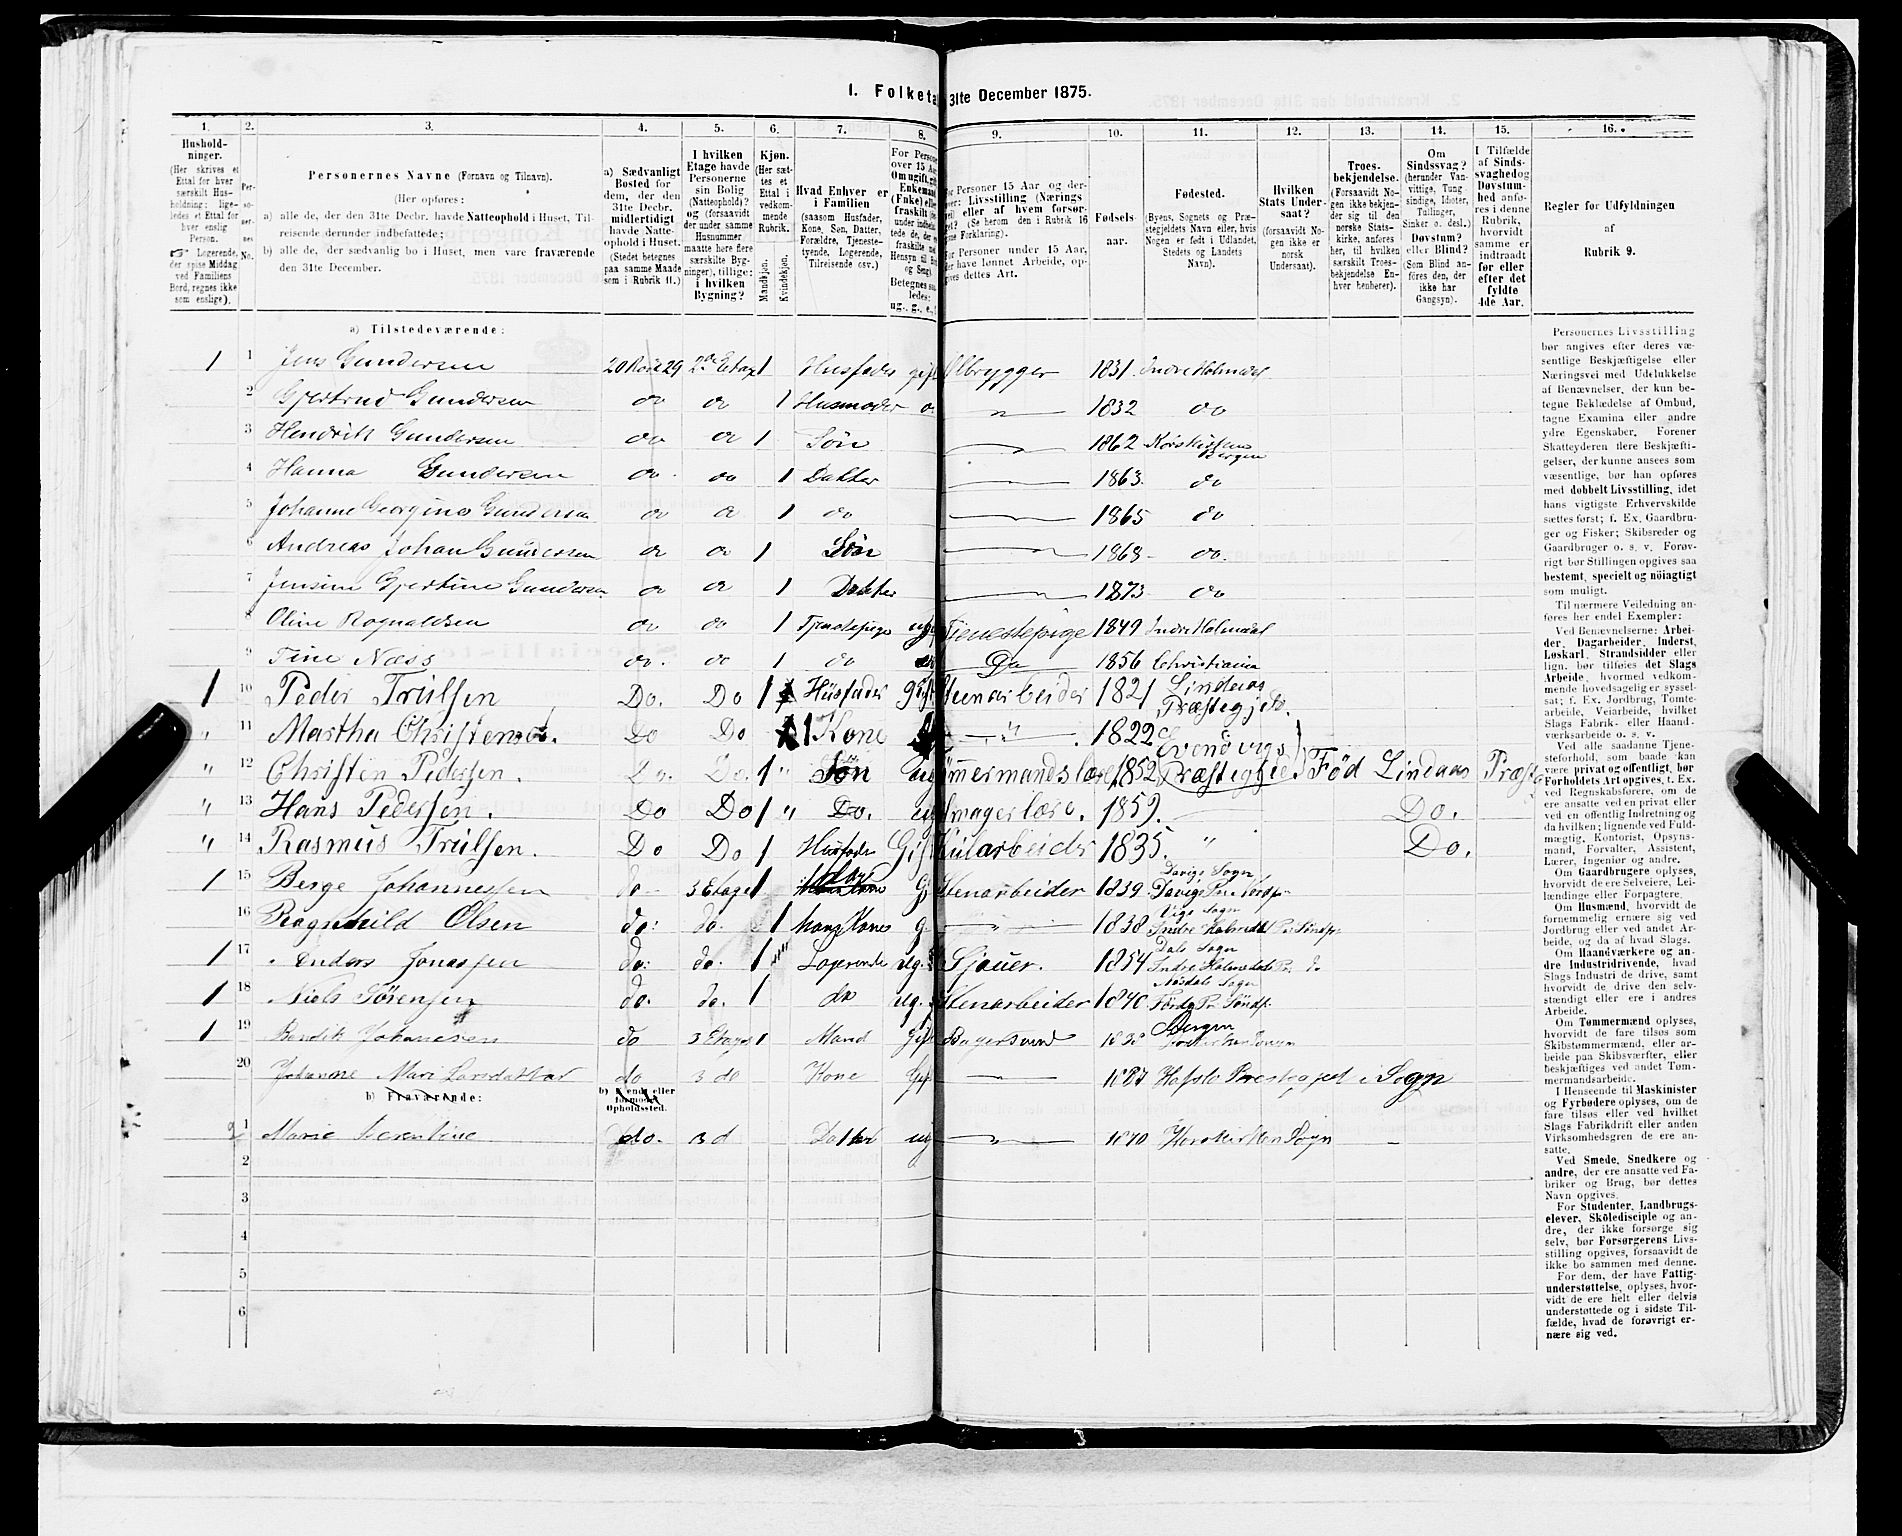 1. Folketa 31te December 1875.
1. 2. 3. 4. 5. 6. 7. 8. 9. 10. 11. 12. 13. 14. 15. 16.
Hushold-
ninger.
(Her skrives et
Ettal for hver
særskilt Hus-
holdning; lige-
ledes et Ettal for
hver enslig
Person.
☞ Logerende,
der spise Middag
ved Familiens
Bord, regnes ikke
som enslige).
Per-
so-
ner-
nes
No.
Personernes Navne (Fornavn og Tilnavn).
(Her opføres:
a) alle de, der den 31te Decbr. havde Natteophold i Huset, Til-
reisende derunder indbefattede;
b) alle de, der sædvanlig bo i Huset, men vare fraværende
den 31te December.
a) Sædvanligt
Bosted for
dem, der den
31te Decbr.
midlertidigt
havde Natte-
ophold i Huset.
(Stedet betegnes
paa samme Maade
som i Rubrik 11.)
I hvilken
Etage havde
Personerne
sin Bolig
(Natteophold)?
og (forsaavidt
der under samme
Husnummer
maatte høre flere
særskilte Byg-
ninger), tillige:
i hvilken
Bygning?
Kjøn.
(Her sæt-
tes et
Ettal i
vedkom-
mende
Rubrik.
Mandkjøn.
Kvindekjøn.
Hvad Enhver er
i Familien
(saasom Husfader,
Kone, Søn, Datter,
Forældre, Tjeneste-
tyende, Logerende,
Tilreisende osv.)
For Persone
over 15 Aa
Om ugift, gift
Enkemand
(Enke) eller
fraskilt
Betegnes saa-
ledes:
ug., g., e., f.
Personer 15 Aar og der-
Livsstilling (Nærings
eller af hvem forsør-
get? (Se herom den i Rubrik 16
Forklaring).
Personer under 15 Aar,
der have lønnet Arbeide, op-
gives dettes Art.
Fødsels-
aar.
Fødested.
(Byens, Sognets og Præ-
stegjeldets Navn eller, hvis
Nogen er født i Udlandet,
Stedets og Landets
Navn).
Hvilken
Stats Under-
saat?
(forsaavidt No-
gen ikke er
norsk
Undersaat).
Troes-
bekjendelse.
(Forsaavidt No-
gen ikke bekjen-
der sig til den
norske Stats-
kirke, anføres
her, til hvilken
særskilt Troes-
bekjendelse En-
hver henhører).
Om
Sindssvag?
(herunder Van-
vittige, Tung-
sindige, Idioter,
Tullinger,
Sinker o. desl.)
Døvstum?
eller Blind?
(Som Blind an-
føres den, der
ikke har
Gangsyn).
I Tilfælde
af Sinds-
svaghed og
Døvstum-
hed anfø-
res i denne
Rubrik,
hvorvidt
samme er
indtraadt
før eller
efter det
fyldte
4de Aar.
Regler for Udfyldningen
af
Rubrik 9.
a) Tilstedeværende:
1 1 Jens Gundersen 20 Rode 29 2den Etag 1 Husfader gift Ølbrygger 1831 Indre Holmdal
2 Gjertrud Gundersen do do 1 Husmoder " 1832 do
3 Hendrik Gundersen do do 1 Søn 1862 Korskirken Bergen
4 Hanna Gundersen do do 1 Datter 1863 do
5 Johanne Georgine Gundersen do do 1 do 1865 do
6 Andreas Johan Gundersen do do 1 Søn 1868 do.
7 Jensine Gjertine Gundersen do do 1 Datter 1873 do
8 Oline Rognaldsen do do 1 Tjenestepige ug Tjenestepige 1849 Indre Holmdal
9 Tine Næss do. do 1 do Do 1856 Christiania
1 10 Peder Trulsen Do. Do 1 Husfader Gift Stenarbeider 1821 Lindeaas Præstegjeld.
" 11 Martha Christensd. Do Do 1 Kone " 1822 Evendvigs
" 12 Christen Pedersen. Do. Do. 1 " Søn ug Tømmermandslære 1852 Præstegjeld Fød Lindaas Præstg
" 13 Hans Pedersen. Do Do 1 " Do. ug Smagerlære. 1859. Do.
" 14 Rasmus Trulsen. Do Do 1 Husfader Gift Kularbeider 1835. " Do.
1 15 Berge Johannessen do 3 Etage 1 Gf Stenarbeider 1839 Davigs Sogn, Davigs Pr. Nordf
16 Ragnhild Olsen do: do. 1 hans Kone G. 1838 Sogn Indre Holmedal Pr. Søndf.
1 17 Anders Jonassen do: do. 1 Logerende ug. Sjouer. 1854 Dals Sogn Indre Holmedals Pr. do
1 18 Niels Sørensen do. do. 1 do ug. Stenarbeider 1840 Sogn Førde Pr. Søndf.
1 19 Bendik Johanesen do 3 Etage 1 Mand Gift Bergen
20 Johanne Mari Larsdatter do 3 do Kone Gif Hafslo Prestegjeld i Sogn
b) Fraværende:
b) Kjendt eller
formodet
Opholdssted.
1 Marie do. 3 d Datter ug 1870 Korskirken Sogn
2
3
4
5
6
Personernes Livsstilling
bør angives efter deres væ-
sentlige Beskjæftigelse eller
Næringsvei med Udelukkelse
af Benævnelser, der kun be-
tegne Beklædelse af Ombud,
tagne Examina eller andre
ydre Egenskaber. Forener
Skatteyderen flere Beskjæfti-
gelser, der kunne ansees som
væsentlige, bør han opføres
med dobbelt Livsstilling, idet
hans vigtigste Erhvervskilde
sættes først; f. Ex. Gaardbru-
ger og Fisker; Skibsreder og
Gaardbruger o. s. v. Forøv-
rigt bør Stillingen opgives saa
bestemt, specielt og nöiagtigt
som muligt.
Til nærmere Veiledning an-
føres her endel Exempler:
Ved Benævnelserne: Arbei-
der, Dagarbeider, Inderst,
Løskarl, Strandsidder eller
lign. bør tilføies det Slags
Arbeide, hvormed vedkom-
mende hovedsagelig er syssel-
sat; f. Ex. Jordbrug, Tomte-
arbeide, Veiarbeide, hvilket
Slags Fabrik- eller Haand-
værksarbeide o. s. v.
Ved alle saadanne Tjene-
steforhold, som baade kan
være privat og offentlig, bør
Forholdets Art opgives, t. Ex.
ved Regnskabsførere, om de
ere ansatte ved en privat eller
ved en offentlig Indretning og
da hvilken; lignende ved Fuld-
mægtig, Kontorist, Opsyns-
mand, Forvalter, Assistent,
Lærer, Ingeniør og andre.
Om Gaardbrugere oplyses,
hvorvidt de ere Selveiere, Lei-
lændinge eller Forpagtere.
Om Husmænd, hvorvidt de
fornemmelig ernære sig ved
Jordbrug eller ved andet Ar-
beide, og da af hvad Slags.
Om Haandværkere og an-
dre Industridrivende, hvad
Slags Industri de drive, samt
hvorvidt de drive den selv-
stændigt eller ere i andres
Arbeide.
Om Tømmermænd oplyses,
hvorvidt de fare tilsøs som
Skibstømmermænd, eller ar-
beide paa Skibsværfter, eller
beskjæftiges ved andet Tøm-
mermandsarbeide.
I Henseende til Maskinister
og Fyrbødere oplyses, om de
fare tilsøs eller ved hvilket
Slags Fabrikdrift eller anden
Virksomhedsgren de ere an-
satte.
Ved Smede, Snedkere og
andre, der ere ansatte ved Fa-
briker og Brug, bør dettes
Navn opgives.
For Studenter, Landbrugs-
elever, Skoledisciple og an-
dre, der ikke forsørge sig
selv, bør Forsørgerens Livs-
stilling opgives, forsaavidt de
ikke bo sammen med denne.
For dem, der have Fattig-
understøttelse, oplyses, hvor-
vidt de ere helt eller delvis
understøttede og i sidste Til-
fælde, hvad de forøvrigt er-
nære sig ved.